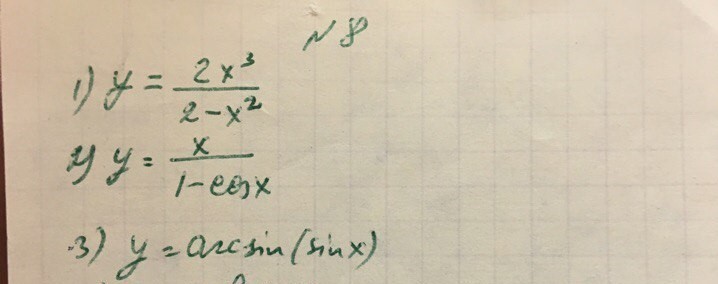 N 8
1) y = 2x³ / 2-x²
2) y = x / 1-cosx
3) y = arcsin(sinx)